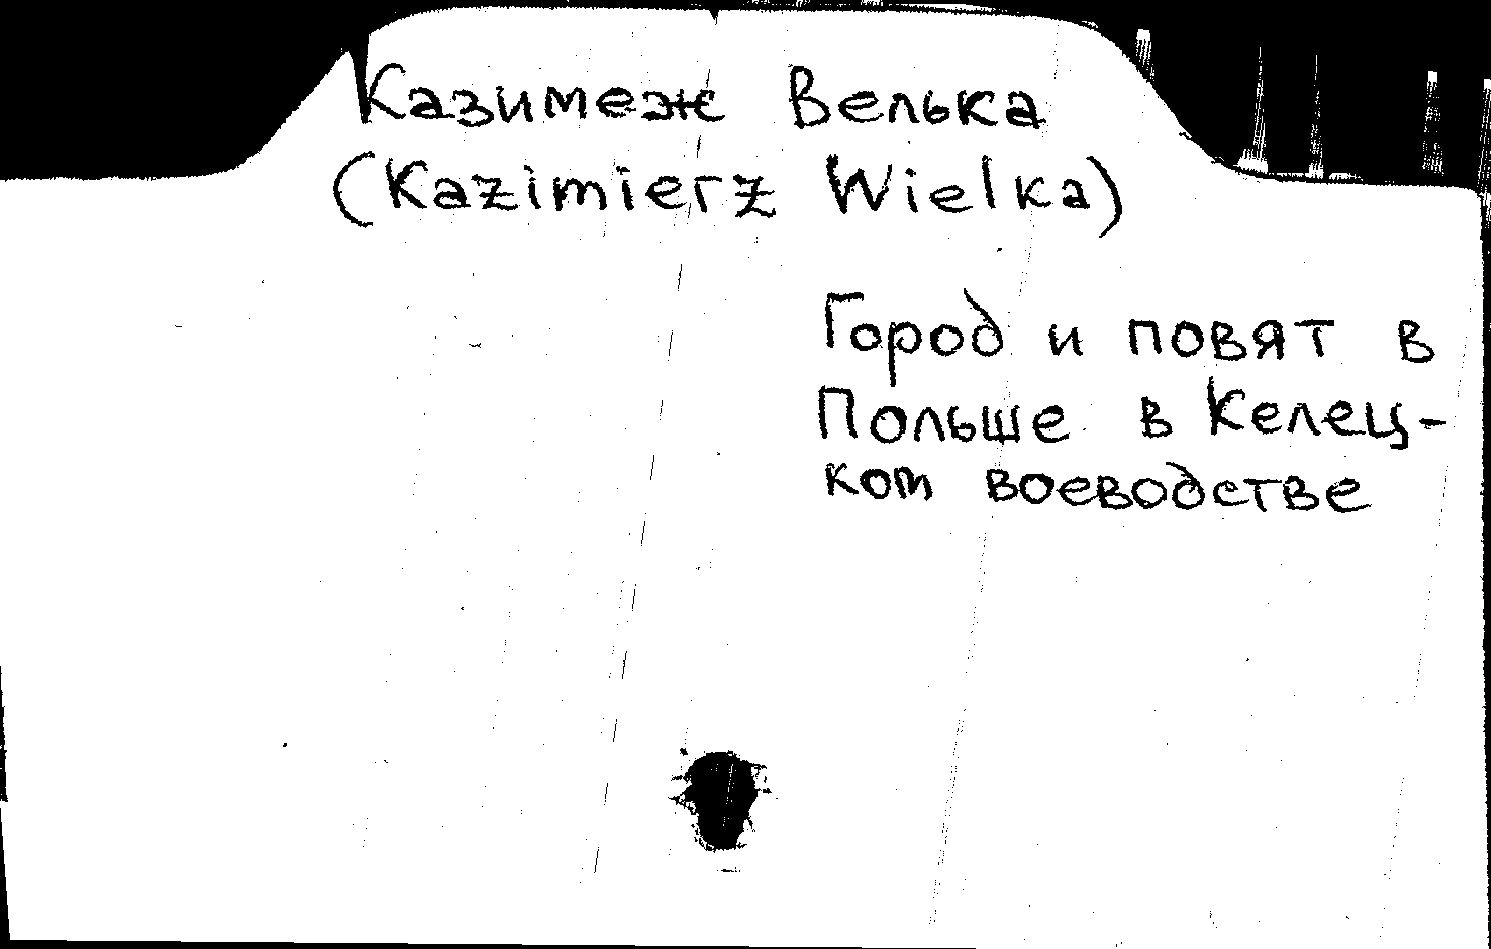 Казимеж Велька
(Kazimierz Wielka)
Город и повят в
Польше в Келец-
ком воеводстве